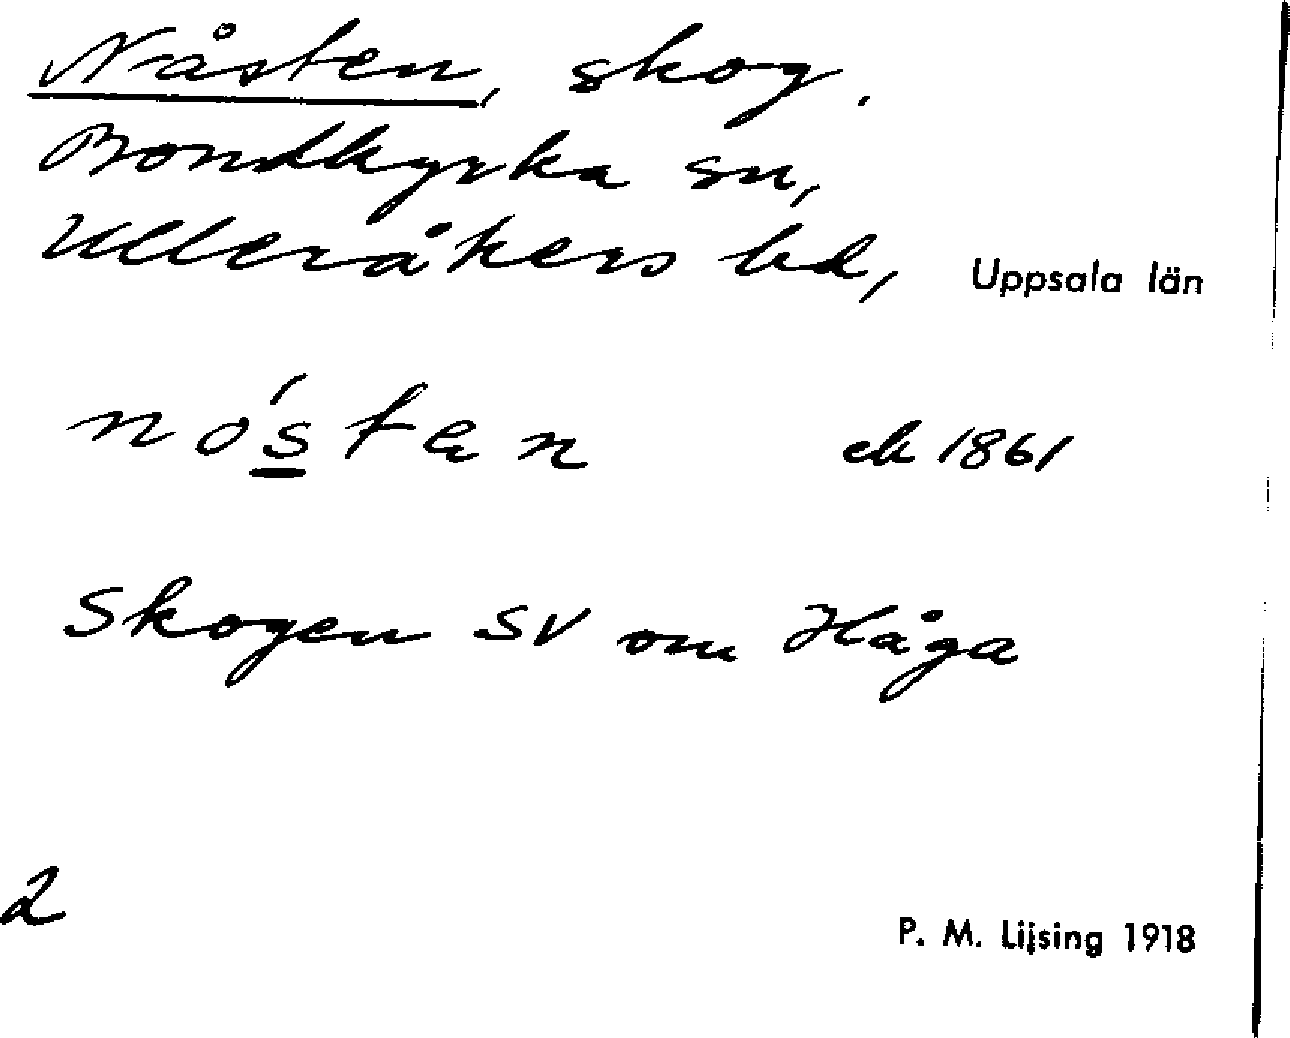 Nåsten, skog.
Bondkyrka sn,
Ulleråkers hd, Uppsala län
nó̱stan ek 1861
Skogen SV om Håga
2
P. M. Lijsing 1918